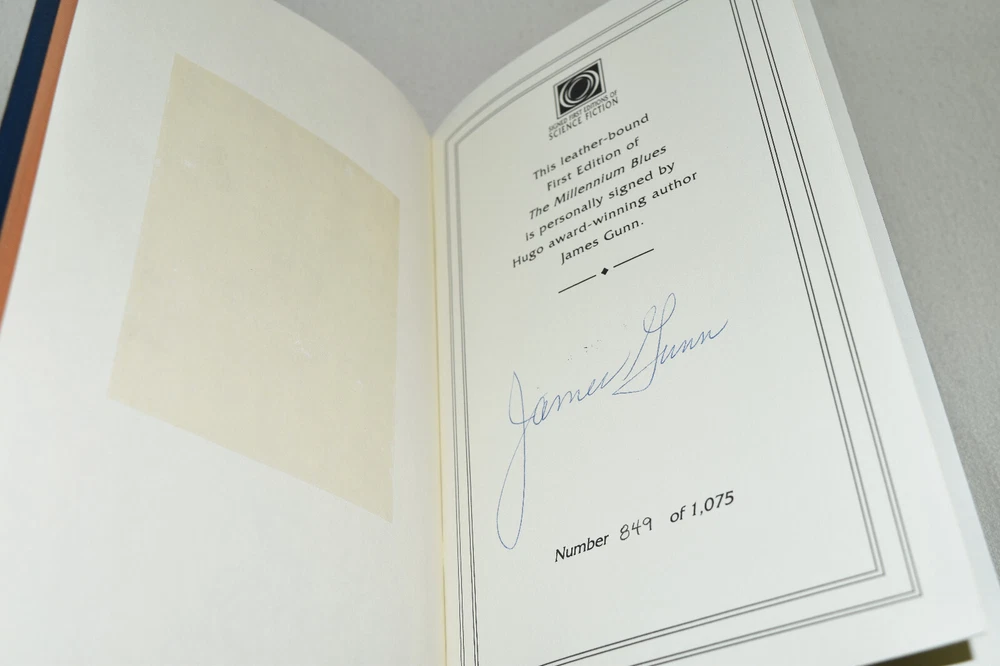 SIGNED FIRST EDITIONS OF
SCIENCE FICTION
This leather-bound
First Edition of
The Millennium Blues
is personally signed by
Hugo award-winning author
James Gunn.
James Gunn
Number 849 of 1,075